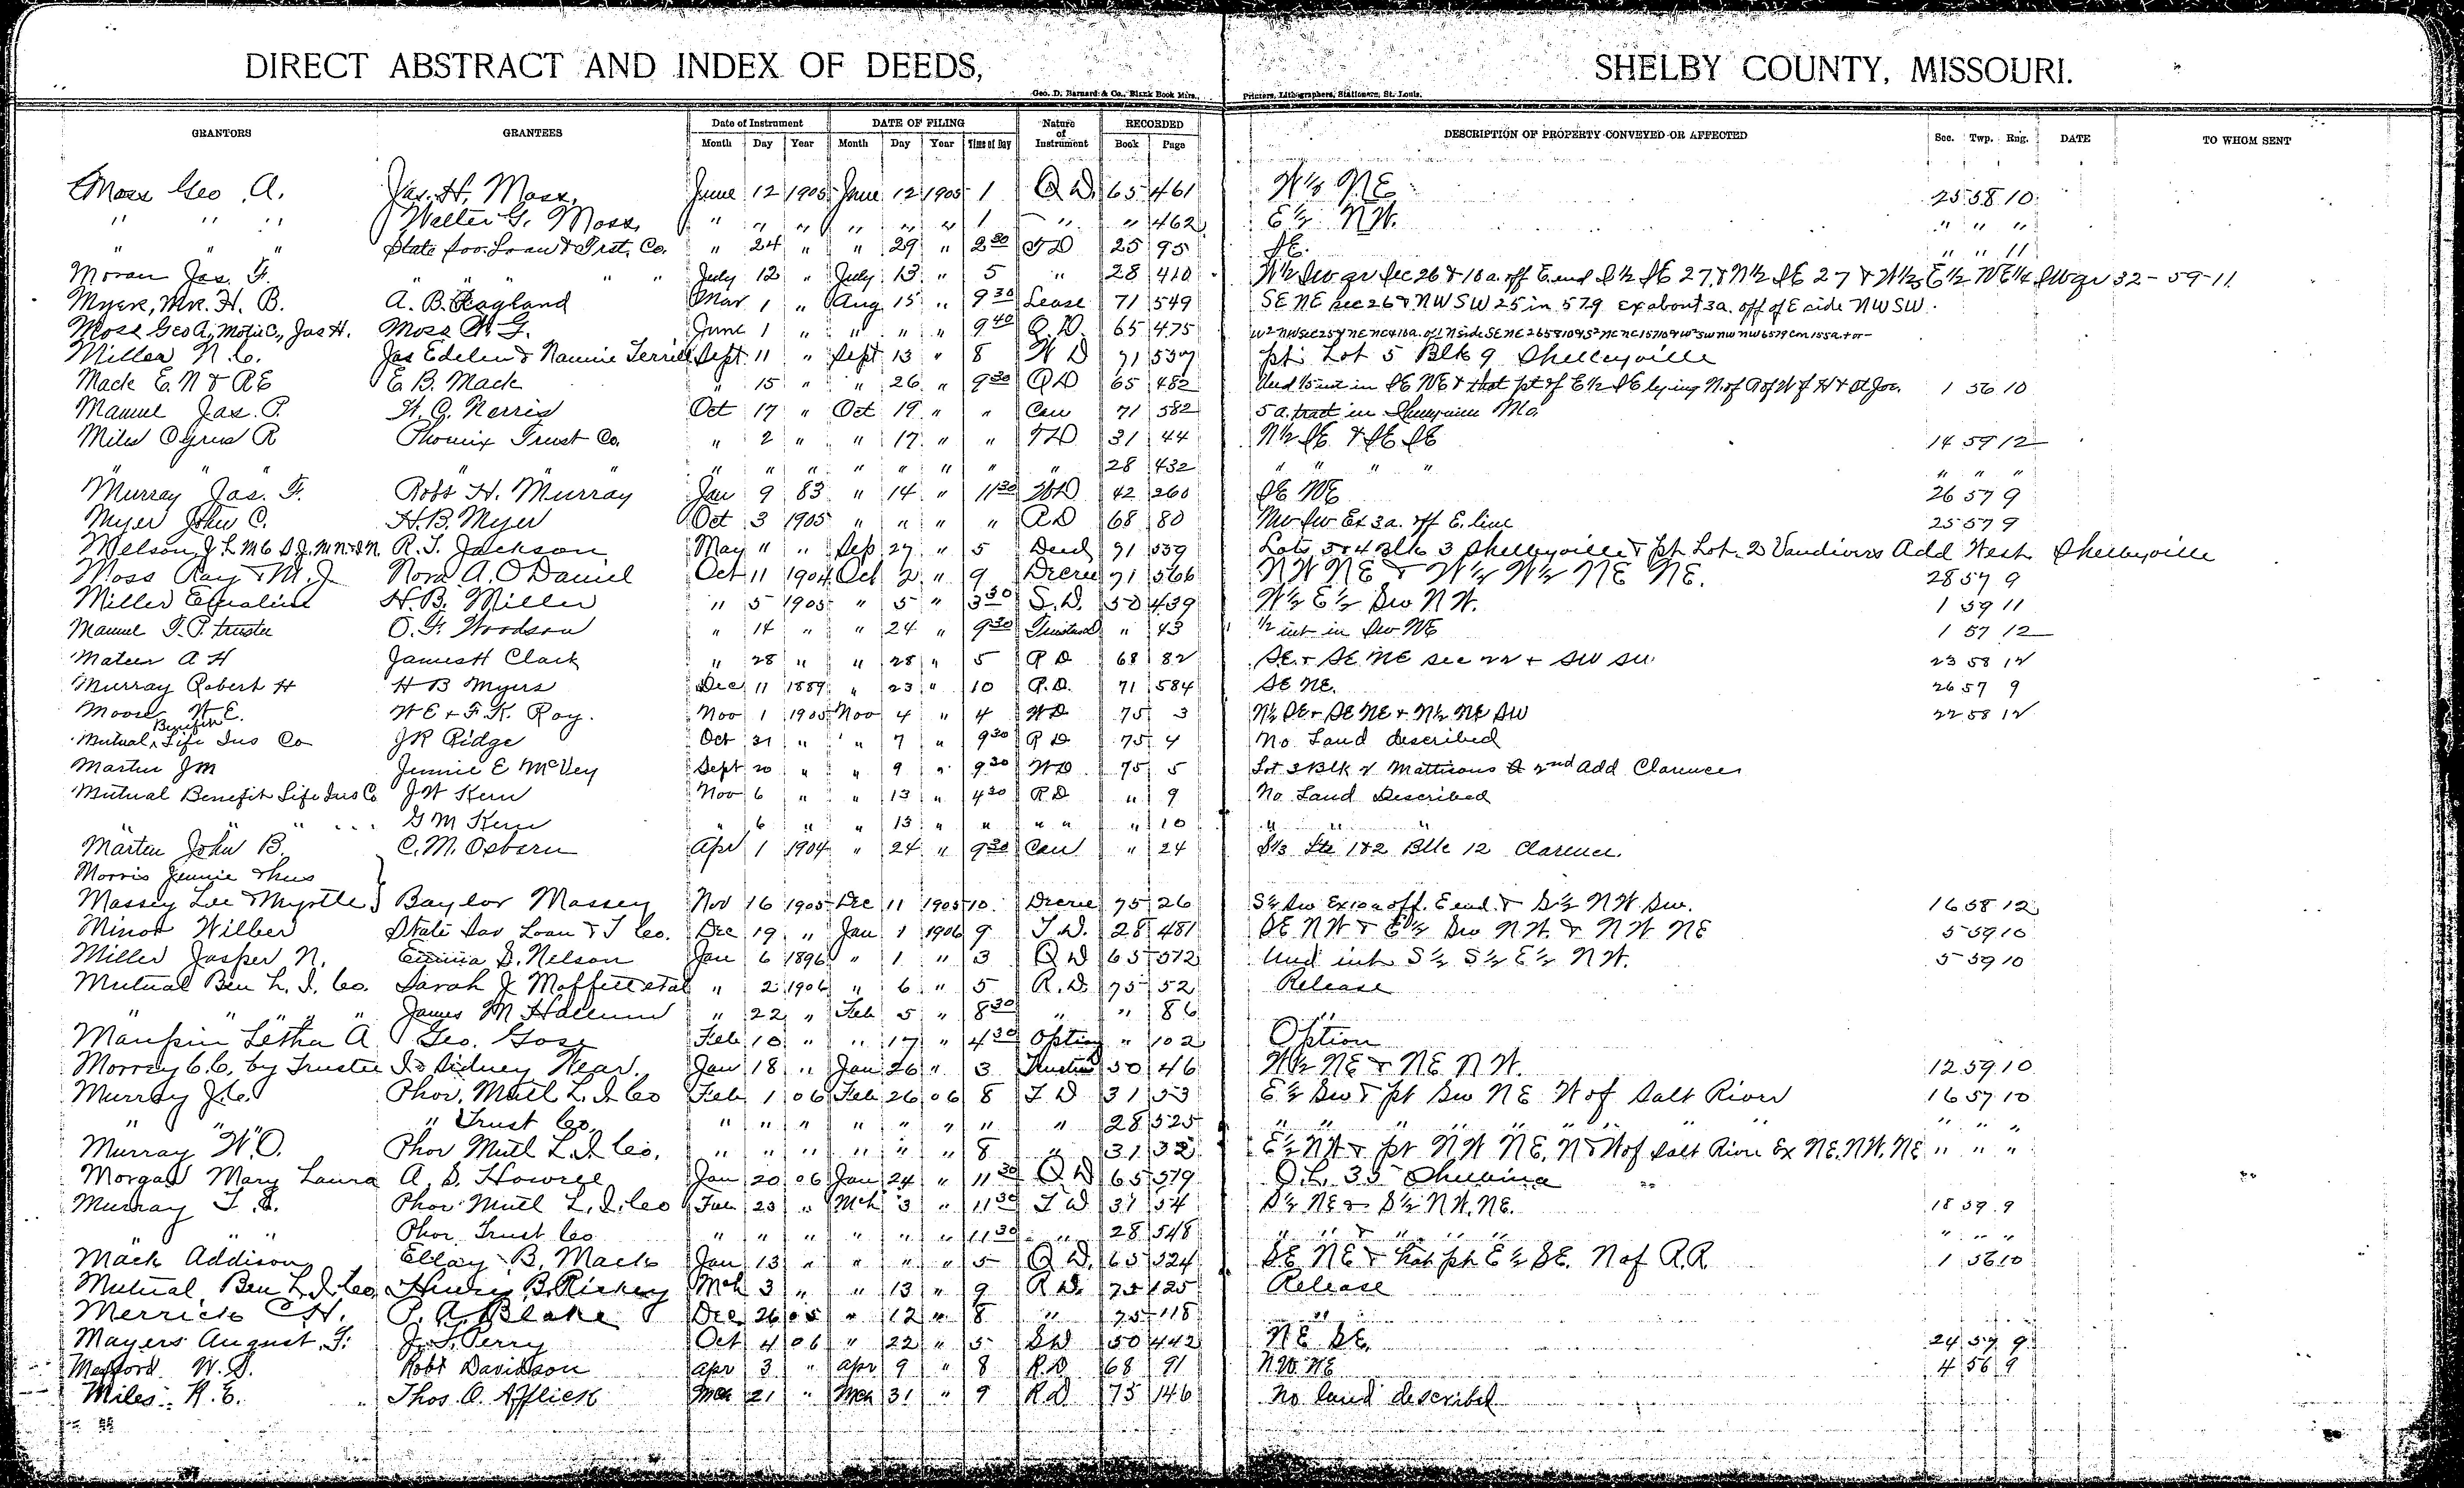 DIRECT ABSTRACT AND INDEX OF DEEDS, SHELBY COUNTY, MISSOURI.
Geo. D. Barnard & Co., Blank Book Mfrs., Printers, Lithographers, Stationers, St. Louis.
GRANTORS GRANTEES Date of Instrument DATE OF FILING Nature of Instrument RECORDED DESCRIPTION OF PROPERTY CONVEYED OR AFFECTED Sec. Twp. Rng. DATE TO WHOM SENT
Month Day Year Month Day Year Time of Day Book Page
Moss Geo A. Jas. H. Moss, June 12 1905 June 12 1905 1 Q D 65 461 W½ NE 25 58 10
" " " Walter G. Moss " " " " " " 1 " " 462 E½ NW. " " "
" " " State Sav. Loan & Trst. Co. " 24 " " 29 " 2 30 TD 25 95 SE. " " 11
Moran Jas. F. " " " " " July 12 " July 13 " 5 " 28 410 W½ Sw qr Sec 26 & 10 a. off E. end S½ SE 27, & N½ SE 27 & W½ E½ NE¼ Sw qr 32 - 59 - 11
Myer, Mr. H. B. A. B. Ragland Mar 1 " Aug 15 " 9 30 Lease 71 549 SE NE sec 26 & NW SW 25 in 579 ex about 3a. off of E side NW SW.
Moss Geo A, Jas H. Moss W. G. June 1 " " " " 9 40 Q. D. 65 475
Miller N. C. Jas Edelen & Nannie Terrill Sept 11 " Sept 13 " 8 W D 71 537 pt. Lot 5 Blk 9 Shelbyville
Mack E. N & A E E. B. Mack " 15 " " 26 " 9 30 Q D 65 482 Und ⅕ int in SE NE & that pt of E½ SE lying N of R of W of H & St Joe. 1 56 10
Manuel Jas. P. H. G. Norris Oct 17 " Oct 19 " " Con 71 582 5 a. tract in Mo.
Miles Cyrus R Phoenix Trust Co. " 2 " " 17 " " T D 31 44 N½ SE & SE SE 14 59 12
" " " " " " " " " " " " " 28 432 " " " " " " "
Murray Jas. F. Robt H. Murray Jan 9 83 " 14 " 11 30 W D 42 260 SE NE 26 57 9
Myer John C. H. B. Myer Oct 3 1905 " " " " R D 68 80 Nw Sw Ex 3 a. off E. line 25 57 9
R. T. Jackson May " " Sep 27 " 5 Deed 71 539 Lots 3 & 4 Blk 3 Shelbyville & pt Lot 2 Vandivers Add West Shelbyville
Moss Ray & M. J. Nora A. O'Daniel Oct 11 1904 Oct 2 " 9 Decree 71 566 NW NE & W½ W½ NE NE. 28 57 9
Miller Emaline H. B. Miller " 5 1905 " 5 " 3 30 S. D. 50 439 W½ E½ Sw NW. 1 59 11
Manuel J. P. trustee O. F. Woodson " 14 " " 24 " 9 30 " 43 ½ int in Sw NE 1 57 12
Mateer A H James H Clark " 28 " " 28 " 5 R D 68 82 SE & SE NE sec 22 & SW SW 23 58 12
Murray Robert H H B Myers Dec 11 1889 " 23 " 10 R. D. 71 584 SE NE. 26 57 9
Moore W E. W E & F. K. Ray. Nov 1 1905 Nov 4 " 4 W D 75 3 N½ SE & SE NE & N½ NE SW 22 58 12
Mutual Benefit Life Ins Co J R Ridge Oct 31 " " 7 " 9 30 R D 75 4 No Land described
Martin J M Jennie E McVey Sept 20 " " 9 " 9 30 W D 75 5 Lot 3 Blk 2 Mattisons 2nd add Clarence
Mutual Benefit Life Ins Co J W Kern Nov 6 " " 13 " 4 30 R D " 9 No Land Described
" " " " G M Kern " 6 " " 13 " " " " " 10 " " "
Martin John B. C. M. Osborn Apr 1 1904 " 24 " 9 30 Con " 24 S⅓ Lts 1 & 2 Blk 12 Clarence.
Morris Jennie & hus
Massey Lee & Myrtle } Baylor Massey Nov 16 1905 Dec 11 1905 10 Decree 75 26 S½ Sw Ex 10 a off E end & S½ NW Sw. 16 58 12
Minor Wilber State Sav Loan & T Co. Dec 19 " Jan 1 1906 9 T. D. 28 481 SE NW & E½ Sw NW. & NW NE 5 59 10
Miller Jasper N. Emma S. Nelson Jan 6 1896 " 1 " 3 Q D 65 572 Und int S½ S½ E½ NW. 5 59 10
Mutual Ben L. I. Co. Sarah J Moffett et al " 2 1906 " 6 " 5 R. D. 75 52 Release
" " " " James M " 22 " Feb 5 " 8 30 " " 86 "
Maupin Letha A Geo. Gose Feb 10 " " 17 " 4 30 Option " 102 Option
Morrey C. C. by Trustee to Sidney Wear. Jan 18 " Jan 26 " 3 Trustee 50 46 W½ NE & NE NW. 12 59 10
Murray J. C. Phoe. Mutl L. I. Co Feb 1 06 Feb 26 06 8 T D 31 53 E½ Sw & pt Sw NE W of Salt River 16 57 10
" " " Trust Co. " " " " " " " " 28 525 " " " " " " "
Murray W. O. Phoe Mutl L. I. Co. " " " " " " 8 " 31 32 E½ NW & pt NW NE, N & W of Salt River Ex NE. NW. NE " " "
Morgan Mary Laura A. S. Howree Jan 20 06 Jan 24 " 11 30 Q D 65 579 O. L. 33 Shelbina
Murray T. S. Phoe Mutl L. I. Co Feb 23 " Mch 3 " 11 30 T D 31 54 S½ NE & S½ NW. NE. 18 59 9
" " Phoe Trust Co " " " " " " 11 30 " 28 548 " " & " " " " " "
Mack Addison Ellay B. Mack Jan 13 " " " " 5 Q D. 65 524 SE NE & that pt E½ SE. N of R. R 1 56 10
Mutual Ben L. I. Co Henry B. Rickey Mch 3 " " 13 " 9 R D. 75 125 Release
Merrick C. H. P. A. Blake Dec 26 05 " 12 " 8 " 75 118 "
Mayers August. F. J. S. Perry Oct 4 06 " 22 " 5 S D 50 442 NE SE. 24 57 9
W. S. Robt Davidson Apr 3 " Apr 9 " 8 R. D 68 91 N.W. NE 4 56 9
Miles R. E. Thos. O. Afflick Mch 21 " Mch 31 " 9 R. D 75 146 No land described